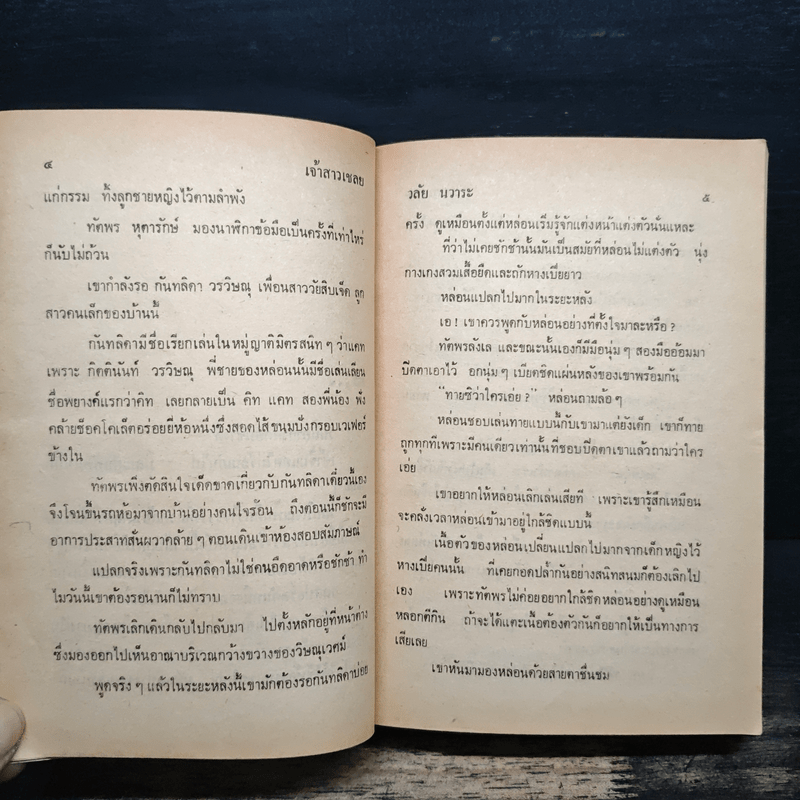 ๔
เจ้าสาวเชลย
แก่กรรม ทิ้งลูกชายหญิงไว้ตามลำพัง
ทัตพร หุตารักษ์ มองนาฬิกาข้อมือเป็นครั้งที่เท่าไหร่
ก็นับไม่ถ้วน
เขากำลังรอ กันทลิดา วรวิษณุ เพื่อนสาววัยสิบเจ็ด ลูก
สาวคนเล็กของบ้านนี้
กันทลิดามีชื่อเรียกเล่นในหมู่ญาติมิตรสนิท ๆ ว่าแคท
เพราะ กิตตินันท์ วรวิษณุ พี่ชายของหล่อนนั้นมีชื่อเล่นเลียน
ชื่อพยางค์แรกว่าคิท เลยกลายเป็น คิท แคท สองพี่น้อง ฟัง
คล้ายช็อคโคเล็ตอร่อยยี่ห้อหนึ่งซึ่งสอดไส้ขนมปังกรอบเวเฟอร์
ข้างใน
ทัตพรเพิ่งตัดสินใจเด็ดขาดเกี่ยวกับกันทลิดาเดี๋ยวนี้เอง
จึงโจนขึ้นรถห้อมาจากบ้านอย่างคนใจร้อน ถึงตอนนี้ก็ชักจะมี
อาการประสาทสั่นผวาคล้าย ๆ ตอนเดินเข้าห้องสอบสัมภาษณ์
แปลกจริงเพราะกันทลิดาไม่ใช่คนอืดอาดหรือชักช้า ทำ
ไมวันนี้เขาต้องรอนานก็ไม่ทราบ
ทัตพรเลิกเดินกลับไปกลับมา ไปตั้งหลักอยู่ที่หน้าต่าง
ซึ่งมองออกไปเห็นอาณาบริเวณกว้างขวางของวิษณุเวศม์
พูดจริง ๆ แล้วในระยะหลังนี้เขามักต้องรอกันทลิดาบ่อย
วลัย นวาระ
๕
ครั้ง ดูเหมือนตั้งแต่หล่อนเริ่มรู้จักแต่งหน้าแต่งตัวนั่นแหละ
ที่ว่าไม่เคยชักช้านั้นมันเป็นสมัยที่หล่อนไม่แต่งตัว นุ่ง
กางเกงสวมเสื้อยืดและถักหางเปียยาว
หล่อนแปลกไปมากในระยะหลัง
เอ ! เขาควรพูดกับหล่อนอย่างที่ตั้งใจมาละหรือ ?
ทัตพรลังเล และขณะนั้นเองก็มีมือนุ่ม ๆ สองมืออ้อมมา
ปิดตาเอาไว้ อกนุ่ม ๆ เบียดชิดแผ่นหลังของเขาพร้อมกัน
"ทายซิว่าใครเอ่ย ?" หล่อนถามล้อ ๆ
หล่อนชอบเล่นทายแบบนี้กับเขามาแต่ยังเด็ก เขาก็ทาย
ถูกทุกทีเพราะมีคนเดียวเท่านั้นที่ชอบปิดตาเขาแล้วถามว่าใคร
เอ่ย
เขาอยากให้หล่อนเลิกเล่นเสียที เพราะเขารู้สึกเหมือน
จะคลั่งเวลาหล่อนเข้ามาอยู่ใกล้ชิดแบบนี้
เนื้อตัวของหล่อนเปลี่ยนแปลกไปมากจากเด็กหญิงไว้
หางเปียคนนั้น ที่เคยกอดปล้ำกันอย่างสนิทสนมก็ต้องเลิกไป
เอง เพราะทัตพรไม่ค่อยอยากใกล้ชิดหล่อนอย่างดูเหมือน
หลอกตีกิน ถ้าจะได้แตะเนื้อต้องตัวกันก็อยากให้เป็นทางการ
เสียเลย
เขาหันมามองหล่อนด้วยสายตาชื่นชม